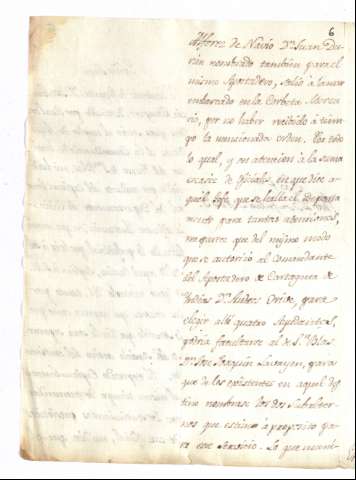 6
Alferez de Navio Dn. Juan Du-
rán nombrado tambien para el
mismo Apostadero, salió à la mar
embarcado en la Corbeta Mercu-
rio, por no haber recibido à tiem-
po la mencionada orden. Por todo
lo qual, y en atencion à la suma
escasez de Oficiales, en que dice a-
quel Jefe que se halla el Departa-
mento para tantas atenciones,
me parece que del mismo modo
que se autorizó al Comandante
del Apostadero de Cartagena de
Yndias Dn. Andres Oribe, para
elegir allí quatro Ayudantes,
podria facultarse al de Sn. Blas
Dn. Josef Joaquin Lavayen, para
que de los existentes en aquel des-
tino nombrase los dos Subalter-
nos que estime à proposito pa-
ra ese servicio. Lo que